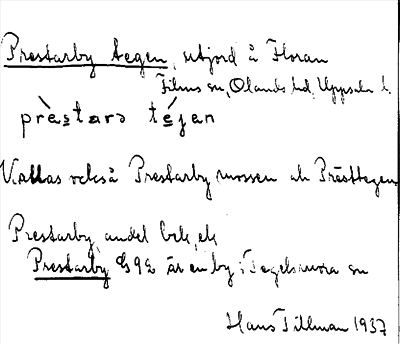 Prestarby tegen, utjord å Floran
Films sn, Olands hd, Uppsala l.
prè̱sta̱rə té̱jən
Kallas också Prestarby mossen ab Prästtegen
Prestarby, andel
Prestarby är en by i Tegelsmora sn
Hans Tillman 1937